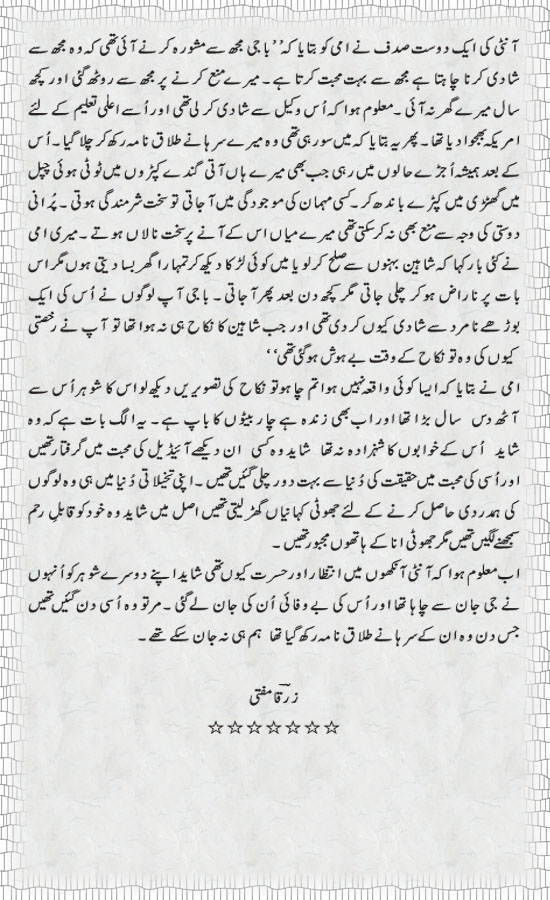 آنٹی کی ایک دوست صدف نے امی کو بتایا کہ’’ باجی مجھ سے مشورہ کرنے آئی تھی کہ وہ مجھ سے
شادی کرنا چاہتا ہے مجھ سے بہت محبت کرتا ہے۔ میرے منع کرنے پر مجھ سے روٹھ گئی اور کچھ
سال میرے گھر نہ آئی ۔معلوم ہوا کہ اُس وکیل سے شادی کر لی تھی اور اُسے اعلی تعلیم کے لئے
امریکہ بھجوا دیا تھا۔ پھر یہ بتایا کہ میں سو رہی تھی وہ میرے سرہانے طلاق نامہ رکھ کر چلا گیا ۔اُس
کے بعد ہمیشہ اُجڑے حالوں میں رہی جب بھی میرے ہاں آتی گندے کپڑوں میں ٹوٹی ہوئی چپل
میں گھٹڑی میں کپڑے باندھ کر۔کسی مہمان کی موجودگی میں آ جاتی تو سخت شرمندگی ہوتی ۔ پُرانی
دوستی کی وجہ سے منع بھی نہ کر سکتی تھی میرے میاں اس کے آنے پر سخت نالاں ہوتے ۔میری امی
نے کئی بار کہا کہ شاہین بہنوں سے صلح کر لو یا میں کوئی لڑکا دیکھ کر تمہارا گھر بسا دیتی ہوں مگر اس
بات پر ناراض ہو کر چلی جاتی مگر کچھ دن بعد پھر آ جاتی ۔ باجی آپ لوگوں نے اُس کی ایک
بوڑھے نامرد سے شادی کیوں کر دی تھی اور جب شاہین کا نکاح ہی نہ ہوا تھا تو آپ نے رخصتی
کیوں کی وہ تو نکاح کے وقت بے ہوش ہو گئی تھی‘‘
امی نے بتایا کہ ایسا کوئی واقعہ نہیں ہوا تم چاہو تو نکاح کی تصویریں دیکھ لو اس کا شوہر اُس سے
آٹھ دس سال بڑا تھا اور اب بھی زندہ ہے چار بیٹوں کا باپ ہے۔ یہ الگ بات ہے کہ وہ
شاید اُس کے خوابوں کا شہزادہ نہ تھا شاید وہ کسی ان دیکھے آئیڈیل کی محبت میں گرفتار تھیں
اور اُسی کی محبت میں حقیقت کی دُنیا سے بہت دور چلی گئیں تھیں ۔اپنی تخیلاتی دُنیا میں ہی وہ لوگوں
کی ہمدردی حاصل کرنے کے لئے جھوٹی کہانیاں گھڑ لیتی تھیں اصل میں شاید وہ خود کو قابلِ رحم
سمجھنے لگیں تھیں مگر جھوٹی انا کے ہاتھوں مجبور تھیں ۔
اب معلوم ہوا کہ آنٹی آنکھوں میں انتظار اور حسرت کیوں تھی شاید اپنے دوسرے شوہر کو اُنہوں
نے جی جان سے چاہا تھا اور اُس کی بے وفائی اُن کی جان لے گئی ۔ مر تو وہ اسی دن گئیں تھیں
جس دن وہ ان کے سرہانے طلاق نامہ رکھ گیا تھا ہم ہی نہ جان سکے تھے ۔
زرقا مفتی
☆☆☆☆☆☆☆